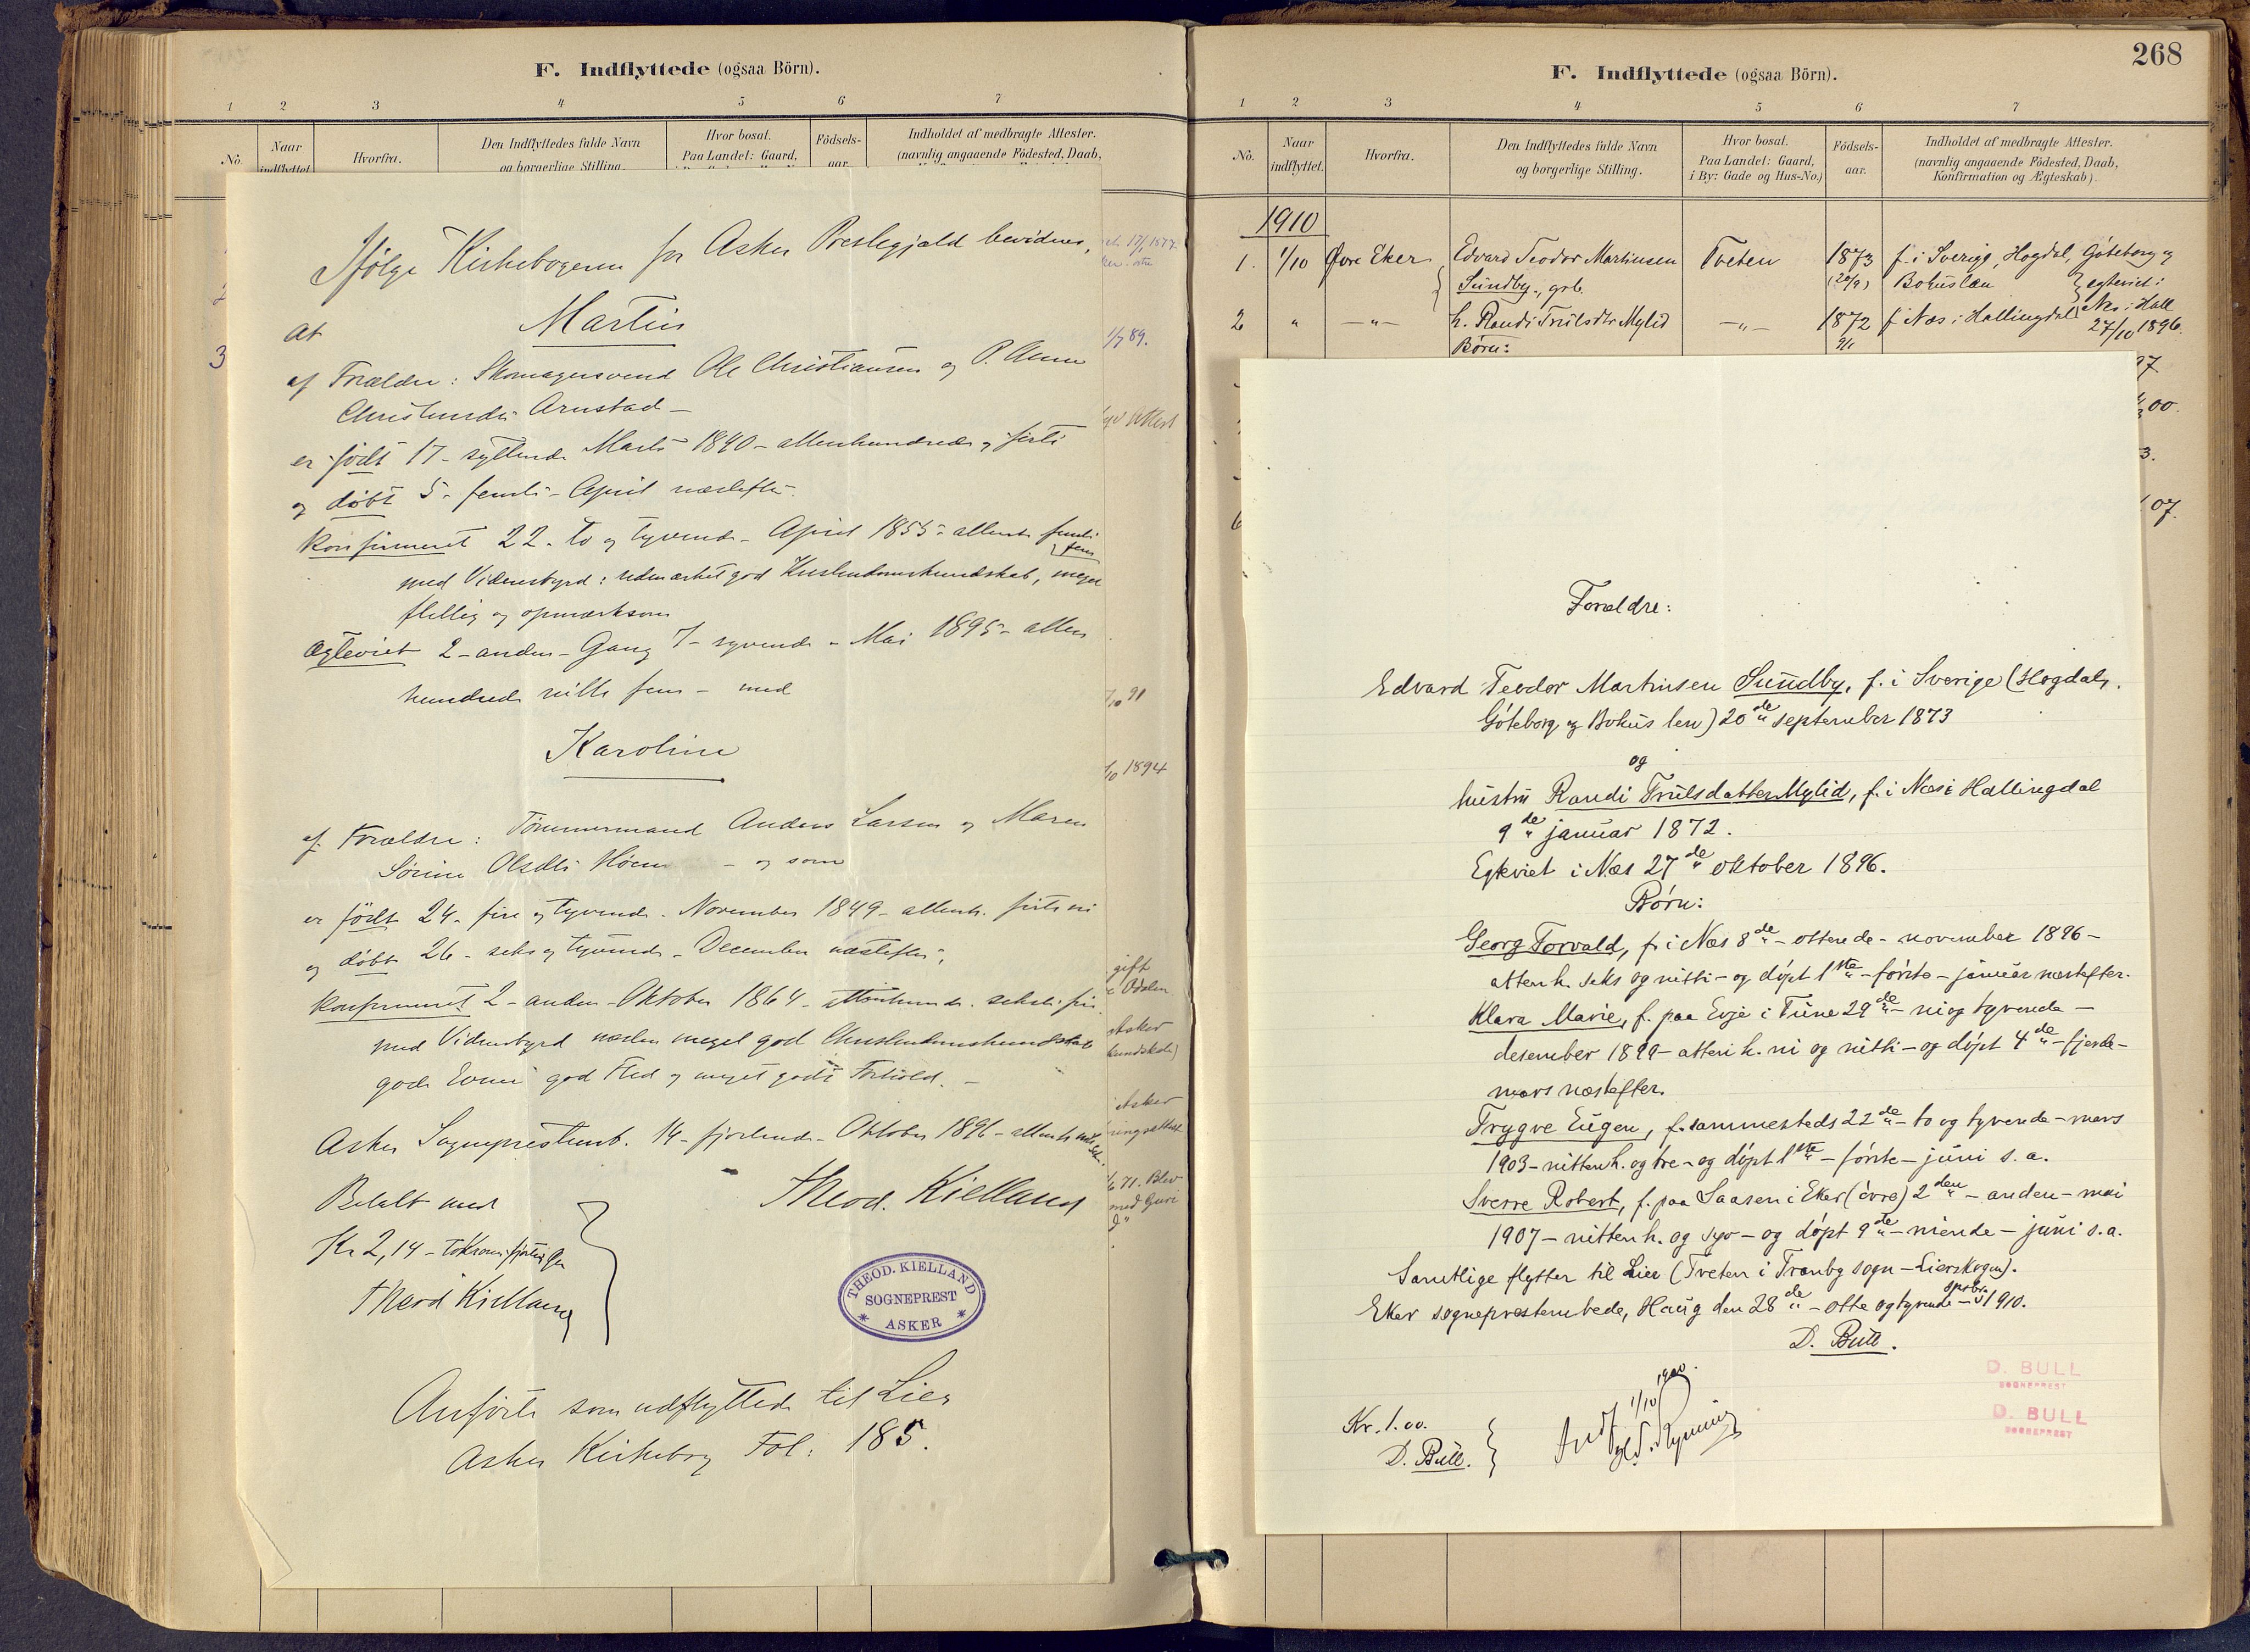 F. Indflyttede (ogsaa Börn).
1 2 3 4 5 6 7
No. Naar indflyttet Hvorfra. Den Indflyttedes fulde Navn og borgerlige Stilling. Hvor bosat. Paa Landet: Gaard, Födsels-aar. Indholdet af medbragte Attester. (navnlig angaaende Födested, Daab,
3
Ifølge Kirkebogen for Asker Prestegjæld bevidnes,
at Martin
af Forældre: Skomagersvend Ole Christiansen og P. Anne
Arnstad –
er født 17 – syttende Marts 1840 – attenhundrede og firti
og døbt 5 – femte – April næstefter.
Konfirmeret 22 – to og tyvende – April 1855 – attenh. femti
fem
med Vidnesbyrd: udmærket god Kristendomskundskab, meget
flittig og opmærksom
Ægteviet 2 – anden – Gang 7 – syvende – Mai 1895 – atten
hundrede nitti fem – med
Karoline
af Forældre: Tømmermand Anders Larsen og Maren
Sørine Olsdtr Høen – og som
er født 24 – fire og tyvende – November 1849 – attenh. firti ni
og døbt 26 – seks og tyvende – December næstefter,
Konfirmeret 2 – anden – Oktober 1864 – attenhundr. seksti fire
med Vidnesbyrd næsten meget god Christendomskundskab
gode Evner god Flid og meget godt Forhold. –
Asker Sogneprestemb. 14 – fjortende – Oktober 1896 – attenh.
Theod. Kielland
Betalt med
Kr 2,14 – to Kroner fjorten Øre
Theod Kielland
THEOD. KIELLAND
SOGNEPREST
* ASKER *
Anførte som udflyttede til Lier
Asker Kirkebog Fol: 185.
1/7 89.
91
1894
gift
Odalen
Asker
kundskab)
Asker
71. Blev
med Guri
268
F. Indflyttede (ogsaa Börn).
1 2 3 4 5 6 7
No. Naar indflyttet. Hvorfra. Den Indflyttedes fulde Navn og borgerlige Stilling. Hvor bosat. Paa Landet: Gaard, i By: Gade og Hus-No.) Födsels-aar. Indholdet af medbragte Attester. (navnlig angaaende Födested, Daab, Konfirmation og Ægteskab).
1910
1. 1/10 Øvre Eker Edvard Teodor Martinsen Tveten 1873 f. i Sverige, Hogdal, Göteborg og
Sundby, grb. (20/9) Bohuslæn egteviet i
2 " – " – h. Randi Trulsdtr Mylid – " – 1872 f. Næs i Hallingdal Nes i Hall
Börn: 9/1 27/10 1896.
97
00.
3.
07.
Forældre:
Edvard Teodor Martinsen Sundby, f. i Sverige (Hogdal,
Göteborg og Bohus len) 20de september 1873
og
hustru Randi Trulsdatter Mylid, f. i Næs i Hallingdal
9de januar 1872.
Egteviet i Næs 27de oktober 1896.
Børn:
Georg Torvald, f. i Næs 8de – ottende – november 1896 –
attenh. seks og nitti – og döpt 1ste – förste – januar næstefter.
Klara Marie, f. paa Evje i Tune 29de – ni og tyvende –
desember 1899 – atten h. ni og nitti – og döpt 4de – fjerde –
mars næstefter.
Trygve Eugen, f. sammesteds 22de – to og tyvende – mars
1903 – nittenh. og tre – og döpt 1ste – förste – juni s. a.
Sverre Robert, f. paa Saasen i Eker (övre) 2den – anden – mai
1907 – nitten h. og syv – og döpt 9de – niende – juni s. a.
Samtlige flytter til Lier (Tveten i Tranby sogn – Lierskogen).
Eker sogneprestembede, Haug den 28de – otte og tyvende – septbr. 1910.
D. Bull.
D. BULL
SOGNEPREST
D. BULL
SOGNEPREST
Kr. 1.00.
D. Bull.
Indf 1/10 1910.